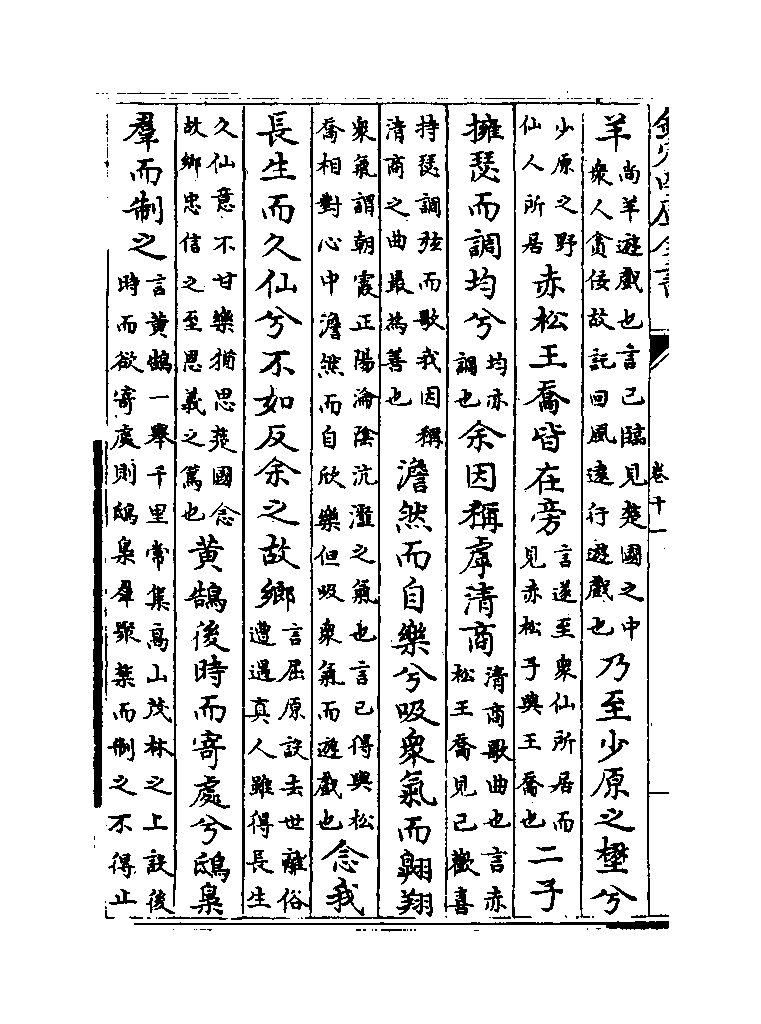 欽定四庫全書 卷十一
羊尚羊遊戲也言己臨見楚國之中衆人貪佞故託回風遠行遊戲也乃至少原之壄兮
少原之野仙人所居赤松王喬皆在旁言遂至衆仙所居而見赤松子與王喬也二子
擁瑟而調均兮均亦調也余因稱虖清商清商歌曲也言赤松王喬見己歡喜
持瑟調弦而歌我因稱清商之曲最為善也澹然而自樂兮吸衆氣而翺翔
衆氣謂朝霞正陽淪陰沆瀣之氣也言己得與松喬相對心中澹然而自欣樂但吸衆氣而遊戲也念我
長生而久仙兮不如反余之故鄉言屈原設去世離俗遭遇真人雖得長生
久仙意不甘樂猶思楚國念故鄉忠信之至恩義之篤也黄鵠後時而寄處兮鴟梟
羣而制之言黄鵠一舉千里常集高山茂林之上設後時而欲寄處則鴟梟羣聚禁而制之不得止